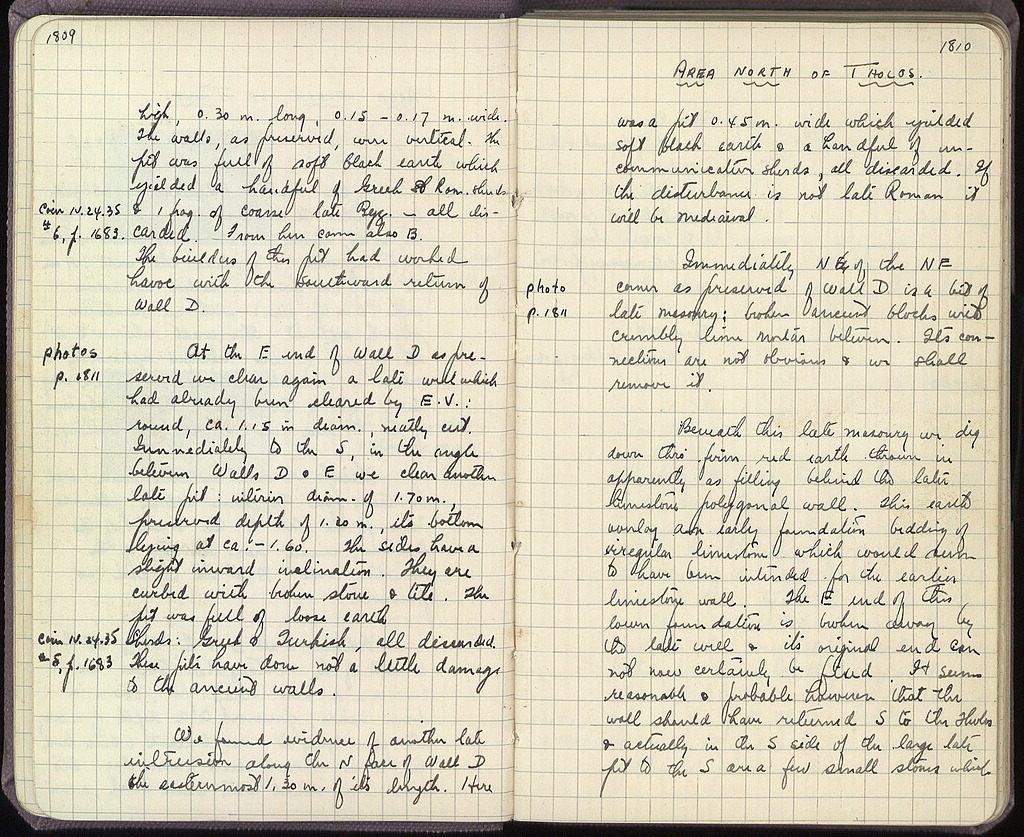 1809
high, 0.30 m. long, 0.15 – 0.17 m. wide.
The walls, as preserved, were vertical. The
pit was full of soft black earth which
yielded a handful of Greek & Rom. sherds
Coin IV.24.35 & 1 frag. of coarse late Byz. – all dis-
#6, p. 1683. carded. From here came also B.
The builders of this pit had worked
havoc with the southward return of
Wall D.
photos At the E end of Wall D as pre-
p. 1811 served we clear again a late well which
had already been cleared by E.V.:
round, ca. 1.15 m diam., neatly cut.
Immediately to the S, in the angle
between Walls D & E we clear another
late pit: interior diam. of 1.70 m.,
preserved depth of 1.20 m., its bottom
lying at ca. – 1.60. The sides have a
slight inward inclination. They are
curbed with broken stone & tile. The
pit was full of loose earth
Coin IV.24.35 Sherds: Greek & Turkish, all discarded.
#5, p. 1683 These pits have done not a little damage
to the ancient walls.
We found evidence of another late
intrusion along the N face of Wall D
the easternmost 1.30 m. of its length. Here
1810
AREA NORTH OF THOLOS.
was a pit 0.45 m. wide which yielded
soft black earth & a handful of un-
communicative sherds, all discarded. If
the disturbance is not late Roman it
will be mediaeval.
Immediately NE of the NE
photo corner as preserved of Wall D is a bit of
p. 1811 late masonry: broken ancient blocks with
crumbly lime mortar between. Its con-
nections are not obvious & we shall
remove it.
Beneath this late masonry we dig
down thro' firm red earth thrown in
apparently as filling behind the late
limestone polygonal wall. This earth
overlay an early foundation bedding of
irregular limestone which would seem
to have been intended for the earlier
limestone wall. The E end of this
lower foundation is broken away by
the late well & its original end can
not now certainly be fixed. It seems
reasonable & probable however that the
wall should have returned S to the Tholos
& actually in the S side of the large late
pit to the S are a few small stones which